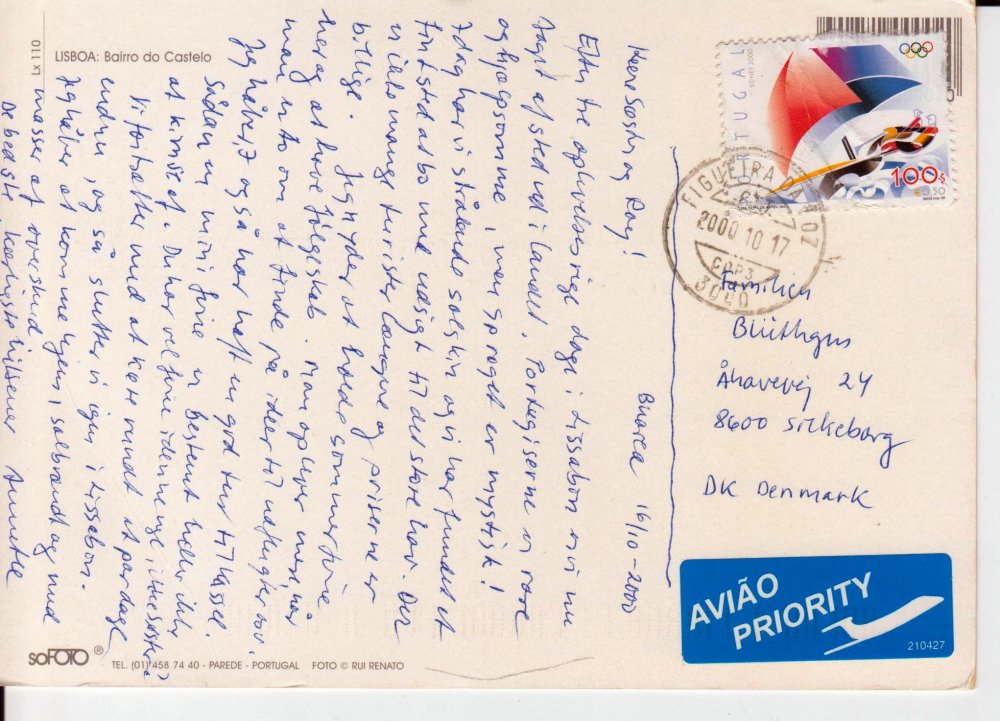 Lx 110
LISBOA: Bairro do Castelo
Buarca 16/10-2000
Kære Søster og Roy!
Efter tre oplevelsesrige dage i Lissabon er vi nu
taget afsted ud i landet. Portugiserne er rare
og hjælpsomme, men sproget er mystisk!
Idag har vi strålende solskin og vi har fundet et
fint sted at bo med udsigt til det store hav. Der
er ikke mange turister længere og priserne er
billige. Jeg nyder at holde sommerferie
her og at have følgeskab. Man oplever mere når
man er to om at finde på ideer til udflugter osv.
Jeg håber I også har haft en god tur til Kassel.
Sådan en miniferie er bestemt heller ikke
at kimse af. Du har vel ferie i denne uge, ikke Søster?
Vi fortsætter med at køre rundt et par dage
endnu, og så slutter vi igen i Lissabon.
Jeg håber at komme hjem, solbrændt og med
masser af overskud.
De bedste, kærligste hilsener Annette
PORTUGAL
SIDNEY 2000
100$
€0,50
FIGUEIRA DA FOZ
2000 10 17
3040
Familien
Blüthgen
Åhavevej 24
8600 Silkeborg
DK Denmark
AVIÃO
PRIORITY
210427
soFOTO ®
TEL. (01) 458 74 40 - PAREDE - PORTUGAL FOTO © RUI RENATO